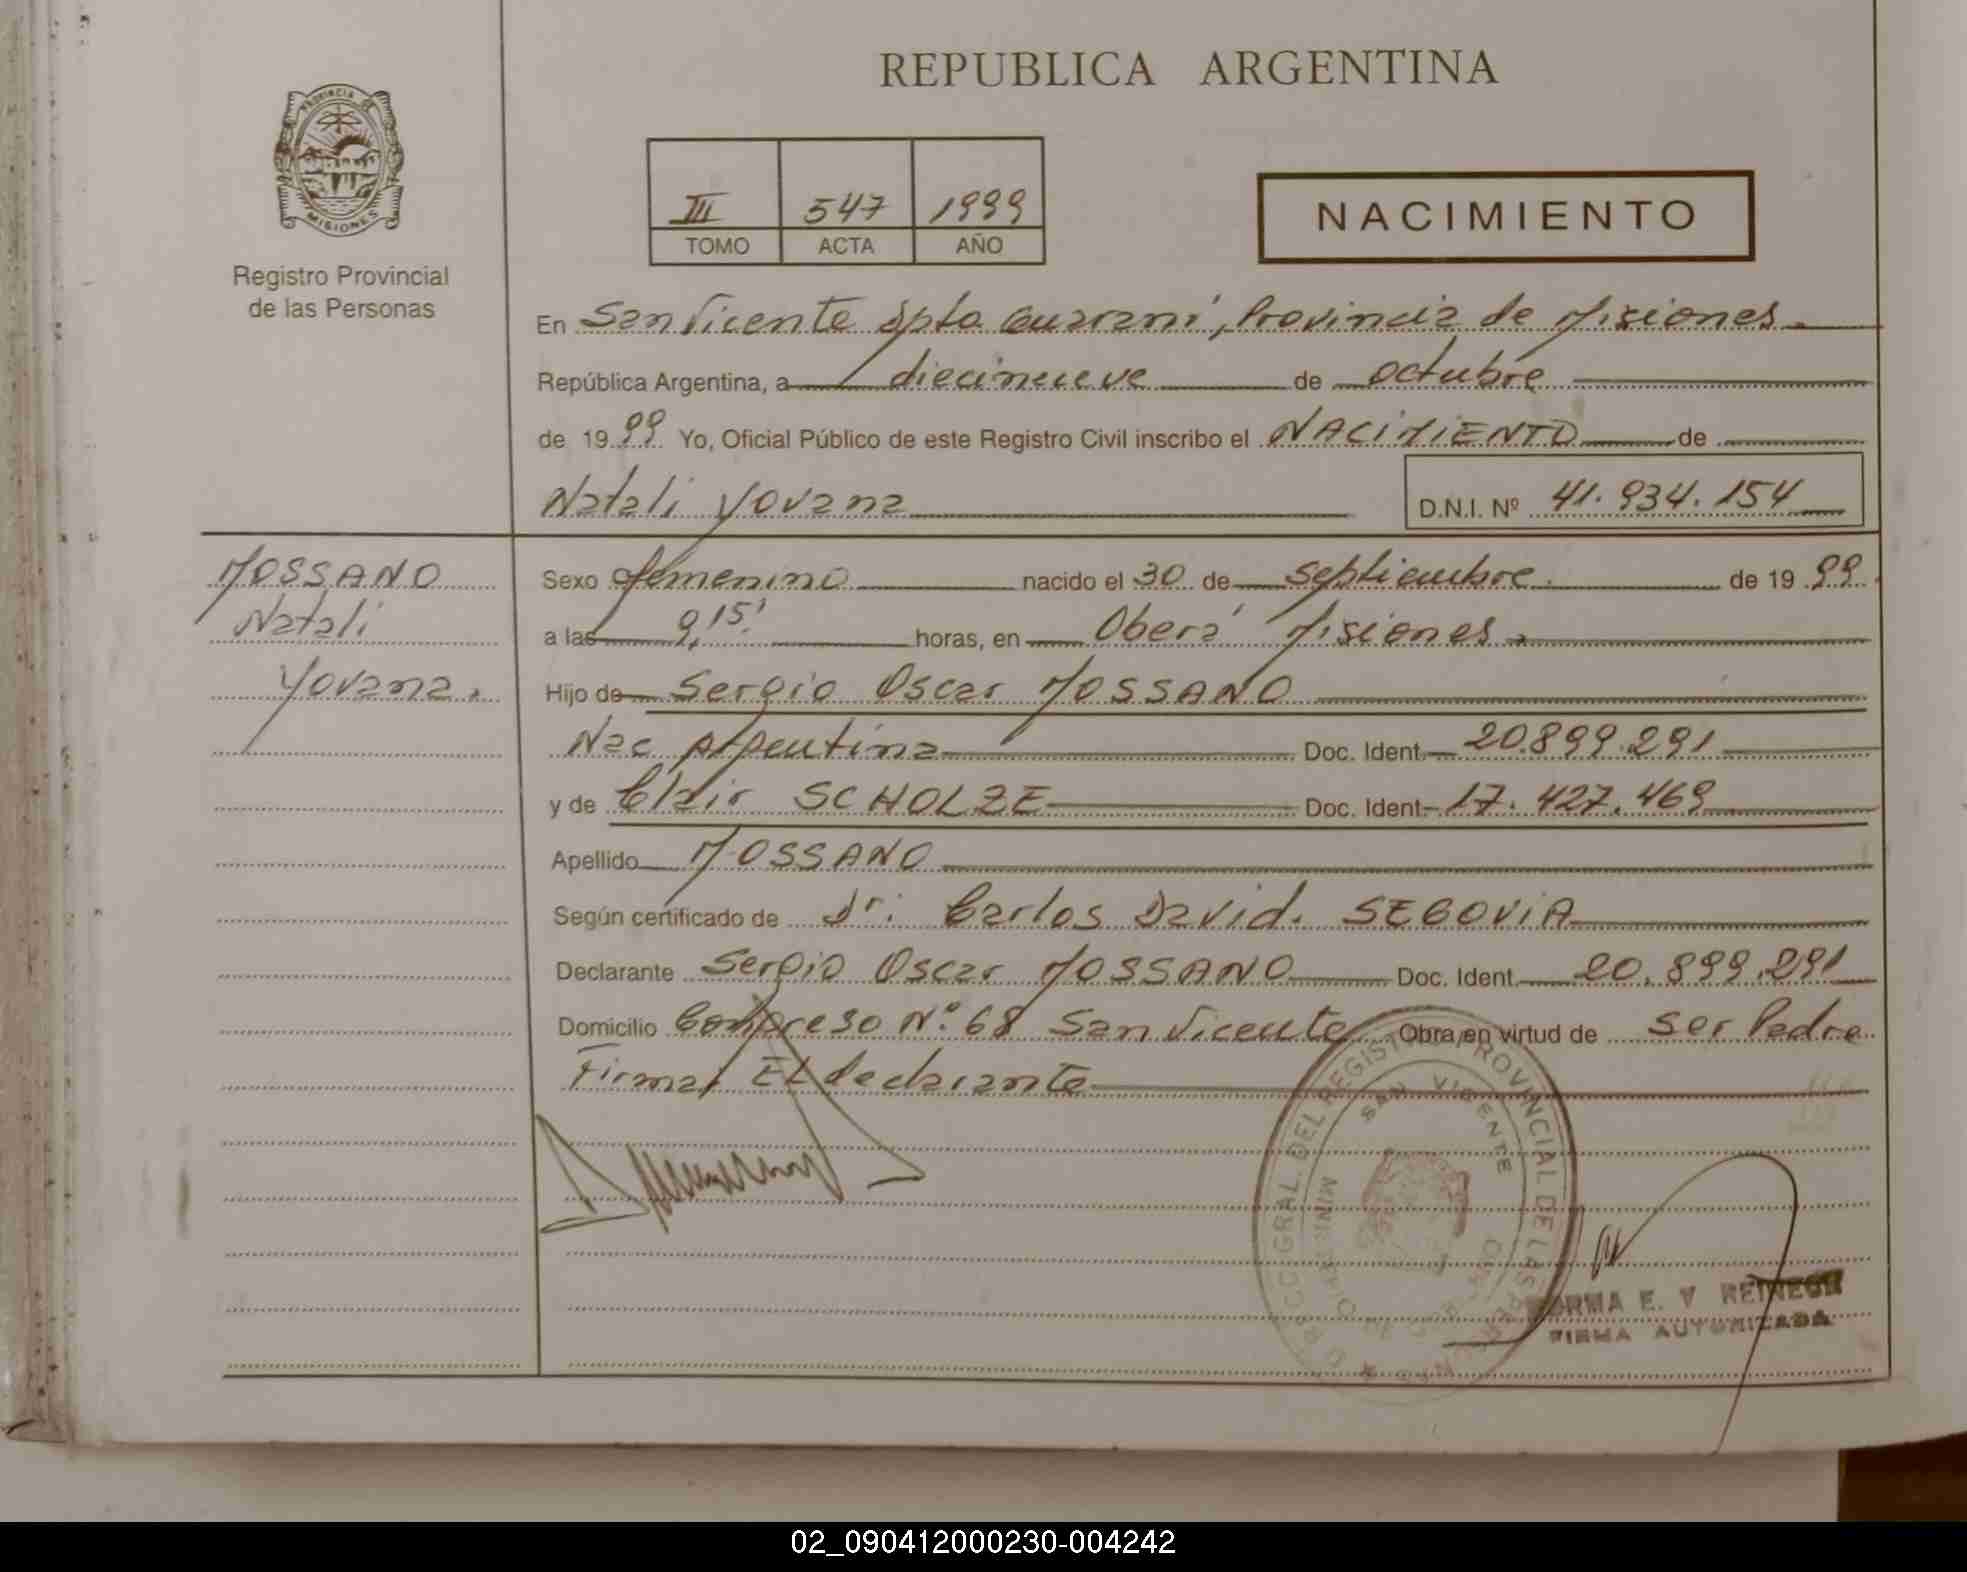 REPUBLICA ARGENTINA
PROVINCIA DE
MISIONES
Registro Provincial
de las Personas
III 547 1999
TOMO ACTA AÑO
NACIMIENTO
En San Vicente Dpto Guaraní, Provincia de Misiones.
República Argentina, a diecinueve de octubre
de 1999 Yo, Oficial Público de este Registro Civil inscribo el NACIMIENTO de
Natali Yovana D.N.I. Nº 41.934.154
MOSSANO
Natali
Yovana.
Sexo femenino nacido el 30 de septiembre. de 1999.
a las 9,15' horas, en Oberá Misiones.
Hijo de Sergio Oscar MOSSANO
Nac Argentina Doc. Ident. 20.899.291
y de Clair SCHOLZE Doc. Ident. 17.427.469
Apellido MOSSANO
Según certificado de Dr: Carlos David. SEGOVIA
Declarante Sergio Oscar MOSSANO Doc. Ident. 20.899.291
Domicilio Congreso Nº 68 San Vicente Obra en virtud de ser Padre
Firma, El declarante
GRAL. DEL REGISTRO PROVINCIAL DE LAS PERSONAS
SAN VICENTE
NORMA E. V REINECK
FIRMA AUTORIZADA
02_090412000230-004242